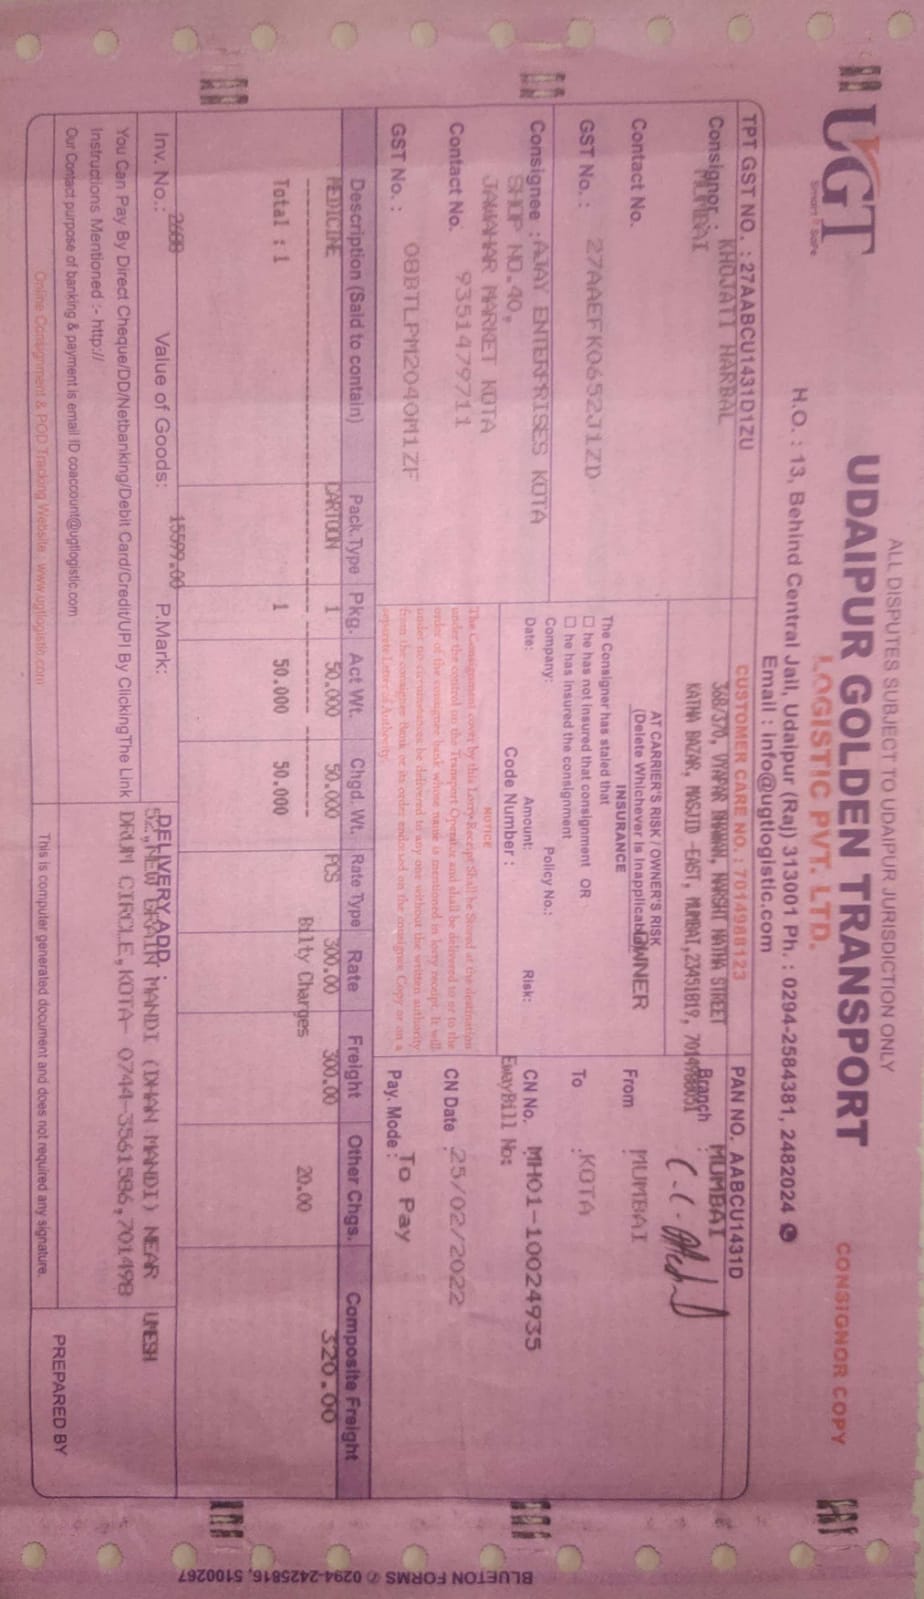 ALL DISPUTES SUBJECT TO UDAIPUR JURISDICTION ONLY
UGT
Smart Safe
UDAIPUR GOLDEN TRANSPORT
LOGISTIC PVT. LTD.
CONSIGNOR COPY
H.O. : 13, Behind Central Jail, Udaipur (Raj) 313001 Ph. : 0294-2584381, 2482024
Email : info@ugtlogistic.com
TPT GST NO. : 27AABCU1431D1ZU
CUSTOMER CARE NO. : 7014988123
PAN NO. AABCU1431D
Consignor : KHOJATI HARBAL
MUMBAI
368/370, VYAPAR BHAWAN, NARSHI NATHA STREET
KATHA BAZAR, MASJID -EAST, MUMBAI,23451819,
Branch : MUMBAI
Contact No.
GST No. : 27AAEFK0652J1ZD
AT CARRIER'S RISK / OWNER'S RISK
(Delete Whichever is Inapplicable) OWNER
INSURANCE
The Consigner has stated that
he has not insured that consignment OR
he has Insured the consignment
Company: Policy No.:
Date: Amount: Risk:
From : MUMBAI
To : KOTA
Consignee : AJAY ENTERPRISES KOTA
SHOP NO.40,
JAWAHAR MARKET KOTA
Contact No. 9351479711
GST No. : 08BTLPM2040M1ZF
Code Number :
NOTICE
The Consignment cover by this Lorry Receipt Shall be Stored at the destination
under the control on the Transport Operator and shall be delivered to or to the
order of the consignee bank whose name is mentioned in lorry receipt. It will
under no circumstances be delivered to any one without the written authority
from the consignee Bank or its order endorsed on the consignee Copy or on a
separate Letter of Authority.
CN No. MH01-10024935
EwayBill No:
CN Date : 25/02/2022
Pay. Mode : To Pay
Description (Said to contain) Pack.Type Pkg. Act Wt. Chgd. Wt. Rate Type Rate Freight Other Chgs. Composite Freight
MEDICINE CARTOON 1 50.000 50.000 PCS 300.00 300.00 320.00
Bilty Charges 20.00
Total : 1 1 50.000 50.000
Inv. No.: 2600 Value of Goods: 15599.00 P.Mark:
DELIVERY ADD :
52,NEW GRAIN MANDI (DHAN MANDI) NEAR
DRUM CIRCLE,KOTA- 0744-3561586,701498
UMESH
You Can Pay By Direct Cheque/DD/Netbanking/Debit Card/Credit/UPI By ClickingThe Link
Instructions Mentioned :- http://
Our Contact purpose of banking & payment is email ID coaccount@ugtlogistic.com
Online Consignment & POD Tracking Website : www.ugtlogistic.com
This is computer generated document and does not required any signature.
PREPARED BY
BLUETON FORMS 0294-2425816, 5100267